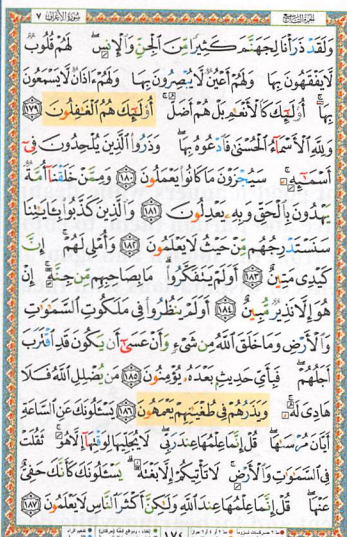 الجزء التاسع سورة الأعراف ٧
وَلَقَدْ ذَرَأْنَا لِجَهَنَّمَ كَثِيرًا مِّنَ الْجِنِّ وَالْإِنسِ ۖ لَهُمْ قُلُوبٌ
لَّا يَفْقَهُونَ بِهَا وَلَهُمْ أَعْيُنٌ لَّا يُبْصِرُونَ بِهَا وَلَهُمْ ءَاذَانٌ لَّا يَسْمَعُونَ
بِهَا ۚ أُو۟لَٰٓئِكَ كَالْأَنْعَٰمِ بَلْ هُمْ أَضَلُّ ۚ أُو۟لَٰٓئِكَ هُمُ الْغَٰفِلُونَ ١٧٩
وَلِلَّهِ الْأَسْمَآءُ الْحُسْنَىٰ فَادْعُوهُ بِهَا ۖ وَذَرُوا۟ الَّذِينَ يُلْحِدُونَ فِىٓ
أَسْمَٰٓئِهِۦ ۚ سَيُجْزَوْنَ مَا كَانُوا۟ يَعْمَلُونَ ١٨٠ وَمِمَّنْ خَلَقْنَآ أُمَّةٌ
يَهْدُونَ بِالْحَقِّ وَبِهِۦ يَعْدِلُونَ ١٨١ وَالَّذِينَ كَذَّبُوا۟ بِـَٔايَٰتِنَا
سَنَسْتَدْرِجُهُم مِّنْ حَيْثُ لَا يَعْلَمُونَ ١٨٢ وَأُمْلِى لَهُمْ ۚ إِنَّ
كَيْدِى مَتِينٌ ١٨٣ أَوَلَمْ يَتَفَكَّرُوا۟ ۗ مَا بِصَاحِبِهِم مِّن جِنَّةٍ ۚ إِنْ
هُوَ إِلَّا نَذِيرٌ مُّبِينٌ ١٨٤ أَوَلَمْ يَنظُرُوا۟ فِى مَلَكُوتِ السَّمَٰوَٰتِ
وَالْأَرْضِ وَمَا خَلَقَ اللَّهُ مِن شَىْءٍ وَأَنْ عَسَىٰٓ أَن يَكُونَ قَدِ اقْتَرَبَ
أَجَلُهُمْ ۖ فَبِأَىِّ حَدِيثٍۭ بَعْدَهُۥ يُؤْمِنُونَ ١٨٥ مَن يُضْلِلِ اللَّهُ فَلَا
هَادِىَ لَهُۥ ۚ وَيَذَرُهُمْ فِى طُغْيَٰنِهِمْ يَعْمَهُونَ ١٨٦ يَسْـَٔلُونَكَ عَنِ السَّاعَةِ
أَيَّانَ مُرْسَىٰهَا ۖ قُلْ إِنَّمَا عِلْمُهَا عِندَ رَبِّى ۖ لَا يُجَلِّيهَا لِوَقْتِهَآ إِلَّا هُوَ ۚ ثَقُلَتْ
فِى السَّمَٰوَٰتِ وَالْأَرْضِ ۚ لَا تَأْتِيكُمْ إِلَّا بَغْتَةً ۗ يَسْـَٔلُونَكَ كَأَنَّكَ حَفِىٌّ
عَنْهَا ۖ قُلْ إِنَّمَا عِلْمُهَا عِندَ اللَّهِ وَلَٰكِنَّ أَكْثَرَ النَّاسِ لَا يَعْلَمُونَ ١٨٧
١٧٤